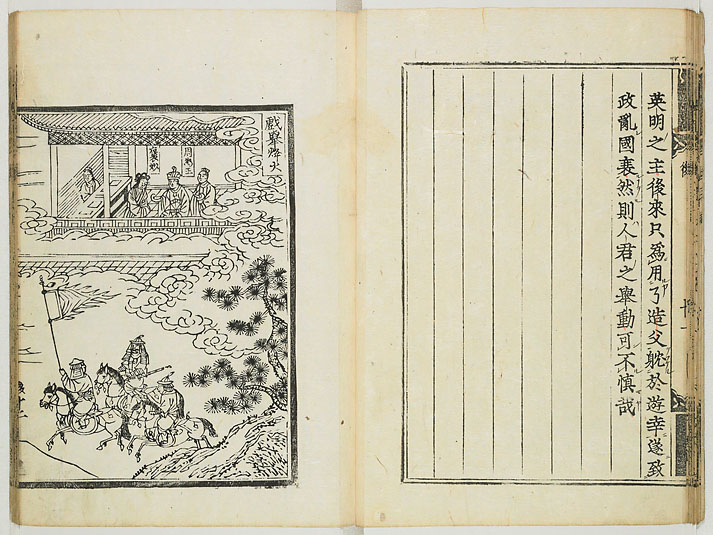 英明之主後來只爲用了造父躭於遊幸遂致
政亂國衰然則人君之舉動可不慎哉
戲舉烽火
周幽王
褒姒